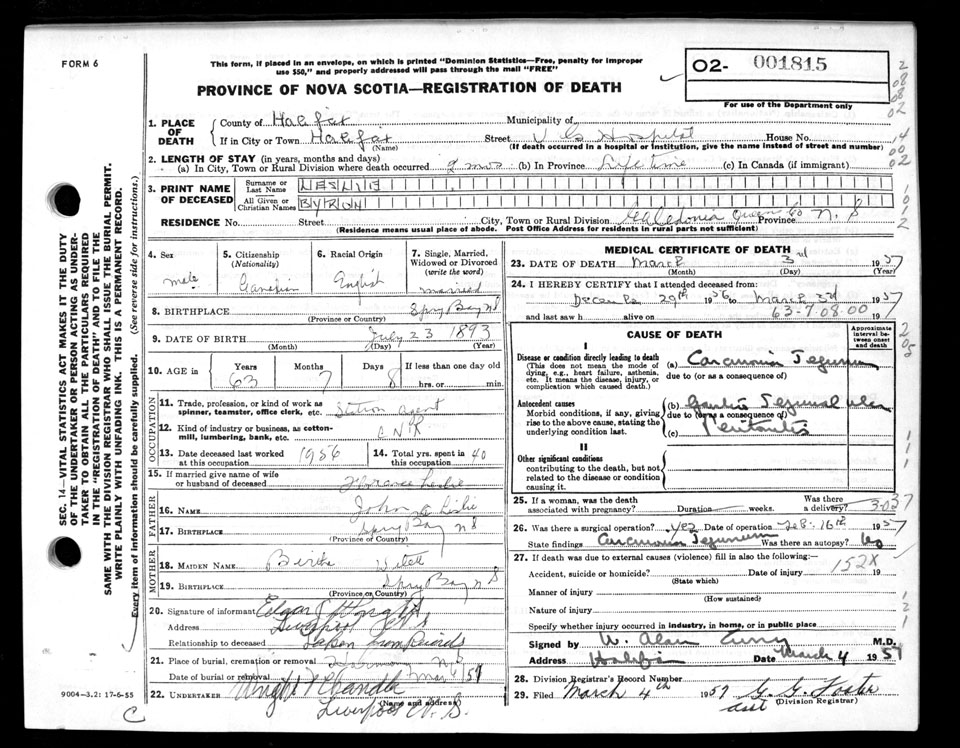 FORM 6
This form, if placed in an envelope, on which is printed "Dominion Statistics—Free, penalty for improper
use $50," and properly addressed will pass through the mail "FREE"
02- 001815
PROVINCE OF NOVA SCOTIA—REGISTRATION OF DEATH
For use of the Department only
1. PLACE OF DEATH
County of Halifax Municipality of
If in City or Town Halifax Street V G Hospital House No.
(Name) (If death occurred in a hospital or institution, give the name instead of street and number)
2. LENGTH OF STAY (in years, months and days)
(a) In City, Town or Rural Division where death occurred 2 mos (b) In Province Life time (c) In Canada (if immigrant)
3. PRINT NAME OF DECEASED
Surname or Last Name LESLIE
All Given or Christian Names BYRON
RESIDENCE No. Street City, Town or Rural Division Caledonia Queens Co Province N. S
(Residence means usual place of abode. Post Office Address for residents in rural parts not sufficient)
4. Sex male
5. Citizenship (Nationality) Canadian
6. Racial Origin English
7. Single, Married, Widowed or Divorced (write the word) married
8. BIRTHPLACE Spry Bay N S
(Province or Country)
9. DATE OF BIRTH July 23 1893
(Month) (Day) (Year)
10. AGE in Years 63 Months 7 Days 8 If less than one day old
hrs. or min.
OCCUPATION
11. Trade, profession, or kind of work as
spinner, teamster, office clerk, etc. Station agent
12. Kind of industry or business, as cotton-
mill, lumbering, bank, etc. C N R
13. Date deceased last worked at this occupation 1956
14. Total yrs. spent in this occupation 40
15. If married give name of wife
or husband of deceased Florence Leslie
FATHER
16. NAME John Leslie
17. BIRTHPLACE Spry Bay N S
(Province or Country)
MOTHER
18. MAIDEN NAME
19. BIRTHPLACE Spry Bay N S
(Province or Country)
20. Signature of informant Edgar
Address Liverpool N S
Relationship to deceased Taken from Records
21. Place of burial, cremation or removal N S
Date of burial or removal Mar 57
22. UNDERTAKER Wright & Chandler
(Name and address)
Liverpool N. S.
9004—3.2: 17-6-55
C
MEDICAL CERTIFICATE OF DEATH
23. DATE OF DEATH March 3rd 1957
(Month) (Day) (Year)
24. I HEREBY CERTIFY that I attended deceased from:
December 29th 1956 to March 3rd 1957
and last saw h alive on 63-7.08.00 19
CAUSE OF DEATH
Approximate interval between onset and death
I
Disease or condition directly leading to death
(This does not mean the mode of
dying, e.g., heart failure, asthenia,
etc. It means the disease, injury, or
complication which caused death.)
(a) Carcinoma Jejunum
due to (or as a consequence of)
Antecedent causes
Morbid conditions, if any, giving
rise to the above cause, stating the
underlying condition last.
(b) Jejunal ulcer
due to (or as a consequence of)
(c) Peritonitis
II
Other significant conditions
contributing to the death, but not
related to the disease or condition
causing it.
25. If a woman, was the death
associated with pregnancy? Duration weeks. Was there a delivery? 3-037
26. Was there a surgical operation? yes Date of operation Feb. 16th 1957
State findings Carcinoma Jejunum Was there an autopsy? No
27. If death was due to external causes (violence) fill in also the following:
Accident, suicide or homicide? Date of injury 152X 19
(State which)
Manner of injury
(How sustained)
Nature of injury
Specify whether injury occurred in industry, in home, or in public place
Signed by W. Alan Curry M.D.
Address Halifax Date March 4 1957
28. Division Registrar's Record Number
29. Filed March 4th 1957 G. G. Foster
asst (Division Registrar)
SEC. 14—VITAL STATISTICS ACT MAKES IT THE DUTY
OF THE UNDERTAKER OR PERSON ACTING AS UNDER-
TAKER TO OBTAIN ALL THE PARTICULARS REQUIRED
IN THE "REGISTRATION OF DEATH" AND TO FILE THE
SAME WITH THE DIVISION REGISTRAR WHO SHALL ISSUE THE BURIAL PERMIT.
WRITE PLAINLY WITH UNFADING INK. THIS IS A PERMANENT RECORD.
Every item of information should be carefully supplied. (See reverse side for instructions.)